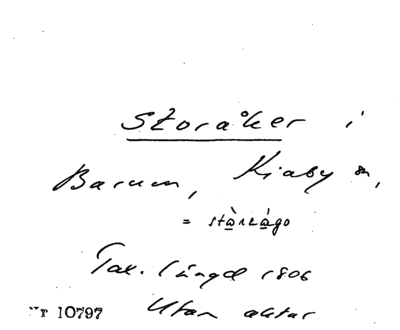 Storåker i
Barum, Kiaby sn,
= stàrcágo
Tax. längd 1806
Nr 10797 Utan aktar